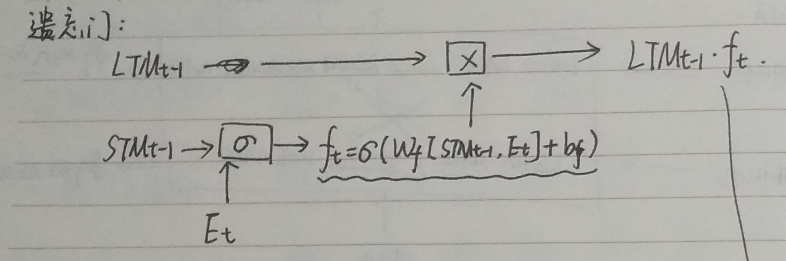 遗忘门:
LTMt-1 → [×] → LTMt-1·ft.
STMt-1 → [σ] → ft=σ(Wf[STMt-1, Et]+bf)
Et